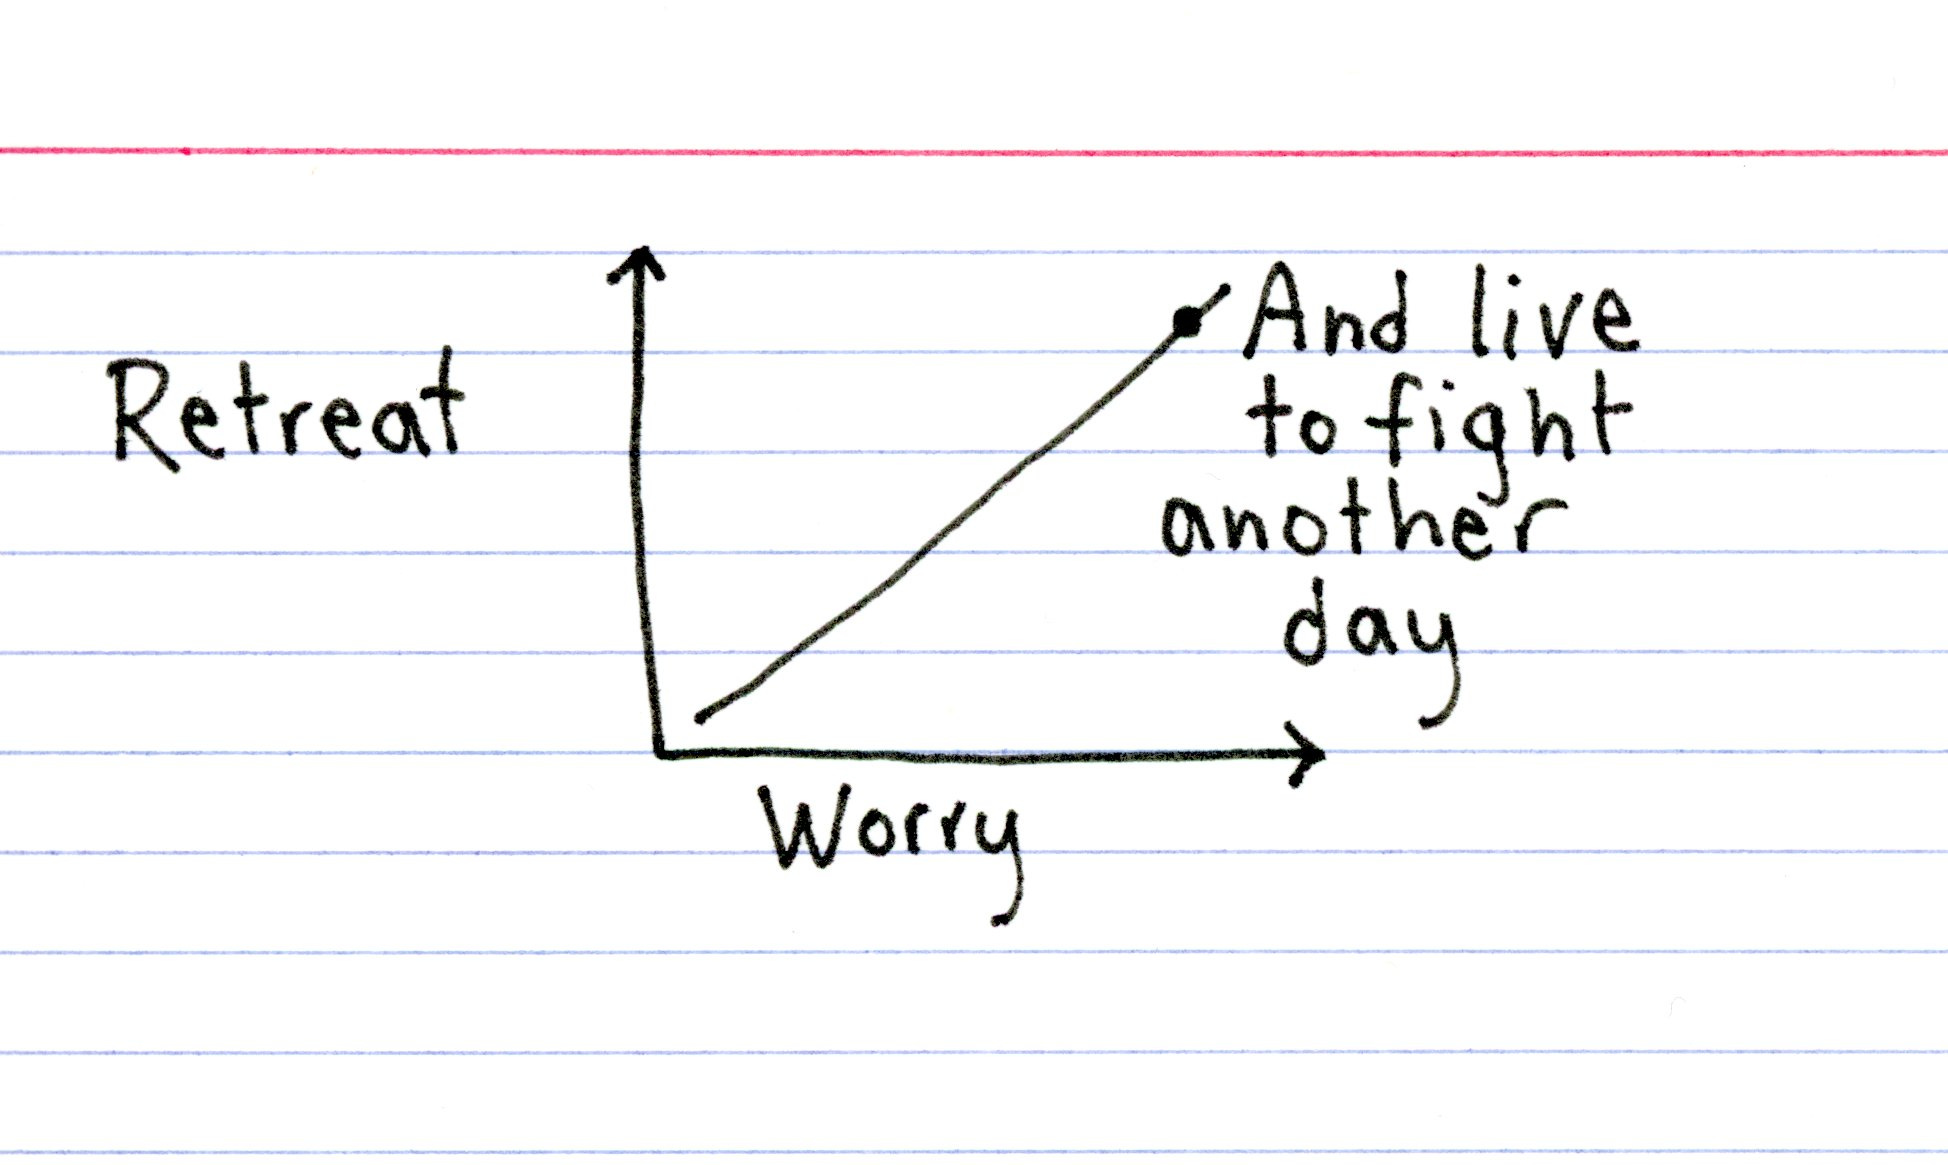 Retreat
And live
to fight
another
day
Worry